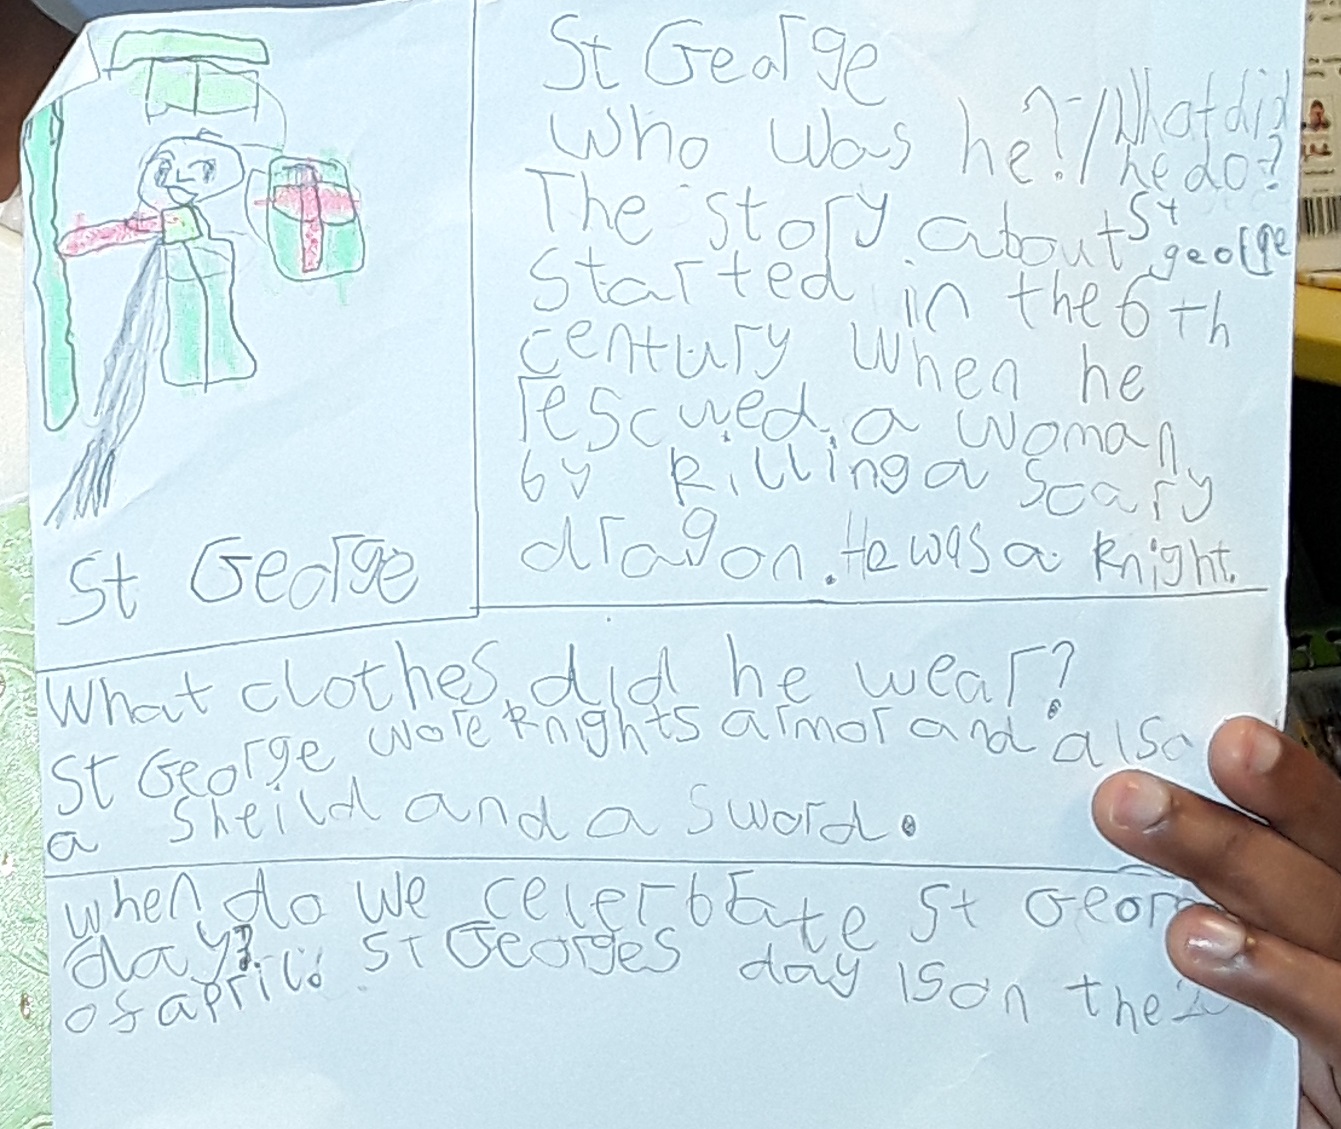 St George
St George
Who was he?/What did
he do?
The story about St
george
started in the 6th
century when he
rescued a woman
by killing a scary
dragon. He was a knight.
What clothes did he wear?
St George wore knights armor and also
a sheild and a sword.
when do we celerbrate St
day? St Georges day is on the
of april.